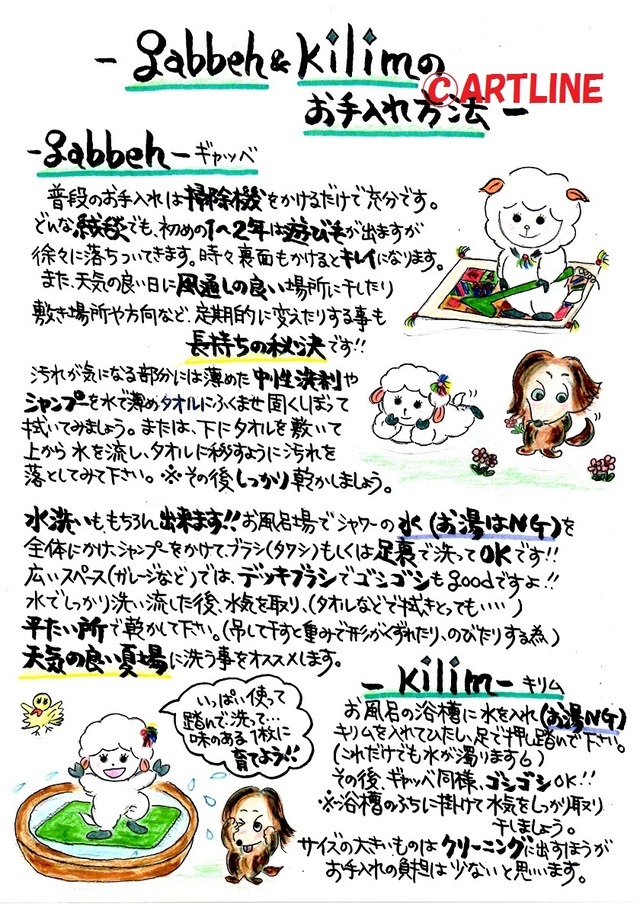 - gabbeh & kilimの
©ARTLINE
お手入れ方法 -
- gabbeh - ギャッベ
普段のお手入れは掃除機をかけるだけで充分です。
どんな絨毯でも、初めの1~2年は遊び毛が出ますが
徐々に落ちついてきます。時々裏面もかけるとキレイになります。
また、天気の良い日に風通しの良い場所に干したり
敷き場所や方向など、定期的に変えたりする事も
長持ちの秘決です!!
汚れが気になる部分には薄めた中性洗剤や
シャンプーを水で薄めタオルにふくませ固くしぼって
拭いてみましょう。または、下にタオルを敷いて
上から水を流し、タオルに移すように汚れを
落としてみて下さい。※その後しっかり乾かしましょう。
水洗いも、もちろん出来ます!!お風呂場でシャワーの水(お湯はNG)を
全体にかけ、シャンプーをかけて、ブラシ(タワシ)もしくは足裏で洗ってOKです!!
広いスペース(ガレージなど)では、デッキブラシでゴシゴシもgoodですよ!!
水でしっかり洗い流した後、水気を取り、(タオルなどで拭きとっても・・・・)
平たい所で乾かして下さい。(吊して干すと重みで形がくずれたり、のびたりする為)
天気の良い夏場に洗う事をオススメします。
- kilim - キリム
お風呂の浴槽に水を入れ(お湯NG)
キリムを入れてひたし、足で押し踏んで下さい。
(これだけでも水が濁ります6)
その後、ギャッベ同様、ゴシゴシOK!!
※浴槽のふちに掛けて水気をしっかり取り
干しましょう。
サイズの大きいものはクリーニングに出すほうが
お手入れの負担は少ないと思います。
いっぱい使って
踏んで洗って…
味のある1枚に
育てよう!!